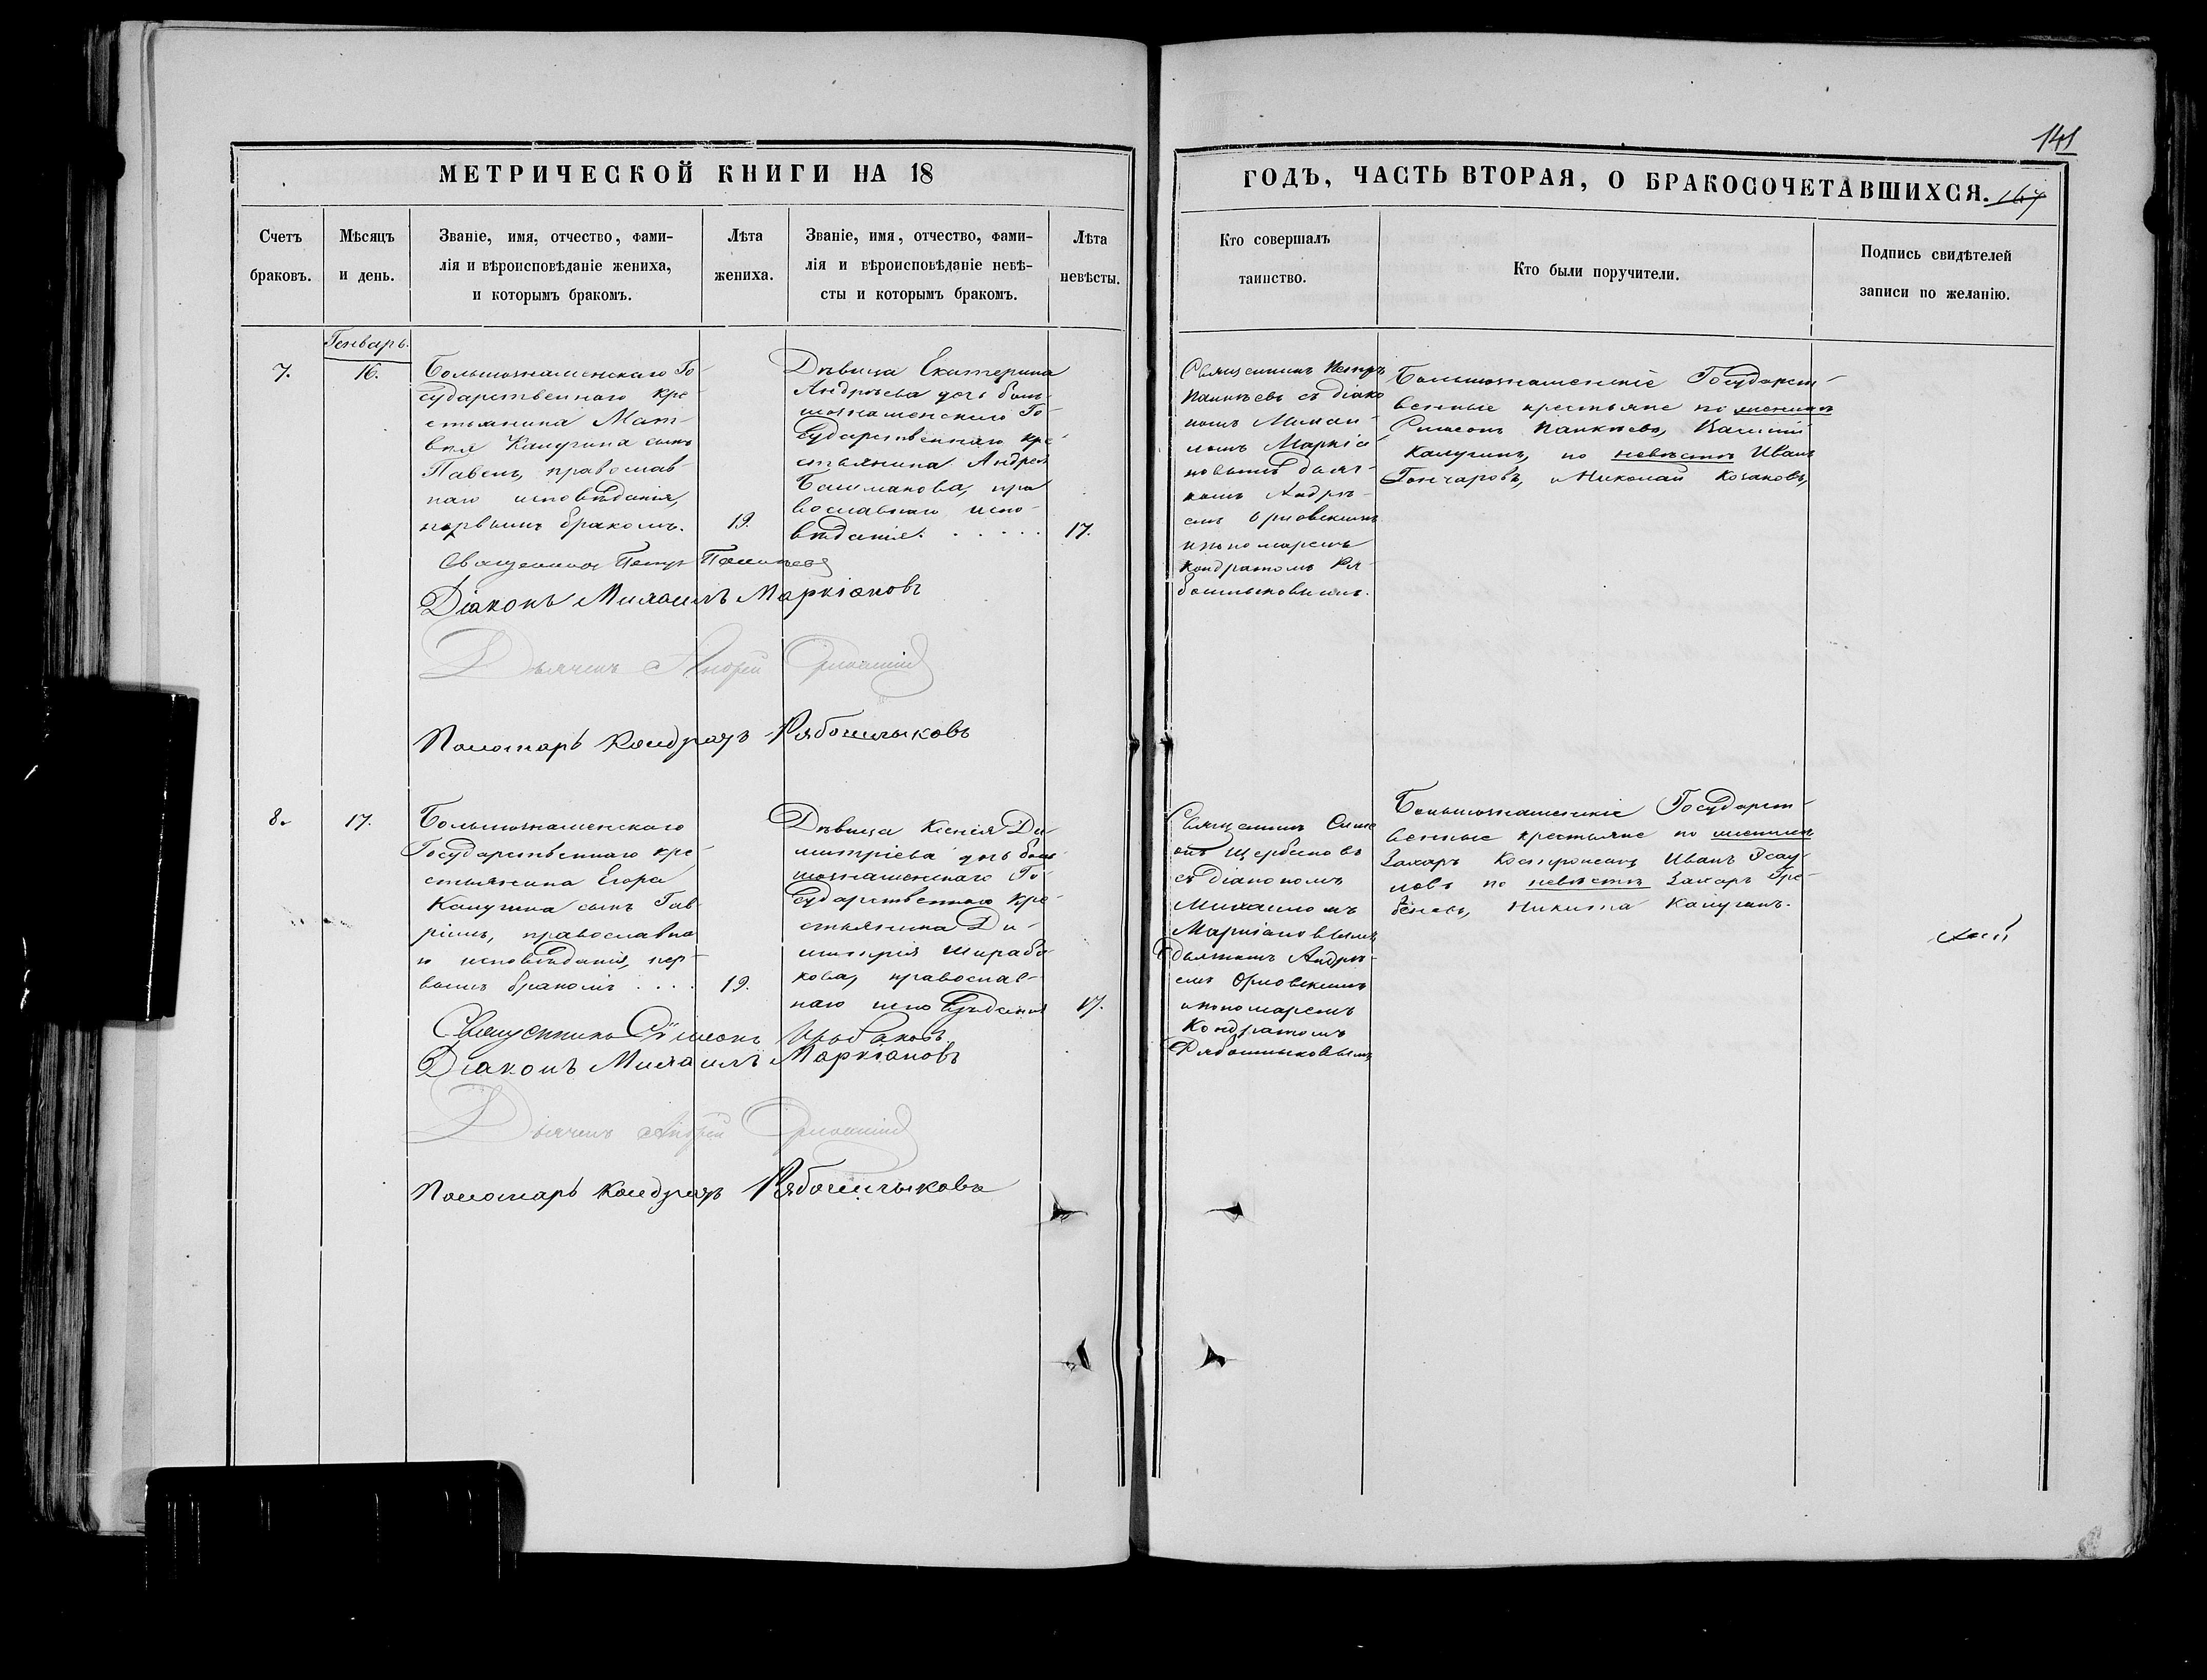 141
МЕТРИЧЕСКОЙ КНИГИ НА 18
ГОДЪ, ЧАСТЬ ВТОРАЯ, О БРАКОСОЧЕТАВШИХСЯ.
167
Счетъ
браковъ.
Мѣсяцъ
и день.
Званіе, имя, отчество, фами-
лія и вѣроисповѣданіе жениха,
и которымъ бракомъ.
Лѣта
жениха.
Званіе, имя, отчество, фами-
лія и вѣроисповѣданіе невѣ-
сты и которымъ бракомъ.
Лѣта
невѣсты.
Кто совершалъ
таинство.
Кто были поручители.
Подпись свидѣтелей
записи по желанію.
Генварь.
7.
16.
Большознаменскаго Го-
сударственнаго кре-
стьянина Мат-
вѣя Калугина сынъ
Павелъ, православ-
наго исповѣданія,
первымъ бракомъ.
19.
Дѣвица Екатерина
Андрѣева дочь боль-
шознаменскаго Го-
сударственнаго кре-
стьянина Андрея
Башманова, пра-
вославнаго испо-
вѣданія. . . . . .
17.
Священникъ Петръ
съ діако-
номъ Михаи-
ломъ Маркіа-
новымъ дьяч-
комъ Андрѣ-
емъ Орловскимъ
и пономаремъ
Кондратомъ Ря-
бошлыковымъ.
Большознаменскіе Государст-
венные крестьяне по женихѣ
Симеонъ Василій
Калугинъ, по невѣстѣ Иванъ
Гончаровъ, Николай Козаковъ,
Священникъ Петръ
Діаконъ Михаилъ Маркіановъ
Дьячекъ Андрей Орловскій
Пономарь Кондратъ Рябошлыковъ
8.
17.
Большознаменскаго
Государственнаго кре-
стьянина Егора
Калугина сынъ Гав-
ріилъ, православна-
го исповѣданія, пер-
вымъ бракомъ . . . .
19.
Дѣвица Ксенія Ди-
митріева дочь боль-
шознаменскаго Го-
сударственнаго кре-
стьянина Ди-
митрія Ширабо-
кова, православ-
наго исповѣданія
17.
Священникъ Симе-
онъ Щербаковъ
съ діакономъ
Михаиломъ
Маркіановымъ
дьячкомъ Андрѣ-
емъ Орловскимъ
и пономаремъ
Кондратомъ
Рябошлыковымъ
Большознаменскіе Государст-
венные крестьяне по женихѣ
Захаръ Иванъ Эсау-
ловъ по невѣстѣ Захаръ Гре-
беневъ, Никита Калугинъ.
Священникъ Сѷмеонъ Щербаковъ.
Діаконъ Михаилъ Маркіановъ
Дьячекъ Андрей Орловскій
Пономарь Кондратъ Рябошлыковъ